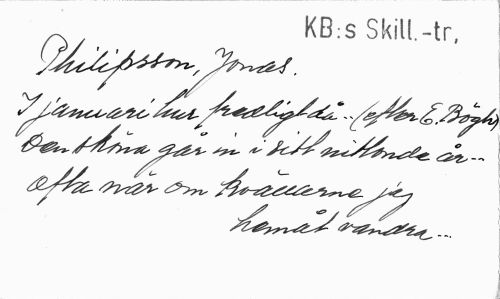 KB:s Skill.-tr,
Philipsson, Jonas.
I januari hur fredligt då.. (efter E. Bögh)
Den sköna går in i sitt nittonde år..
Ofta när om kvällerne jag
hemåt vandra...